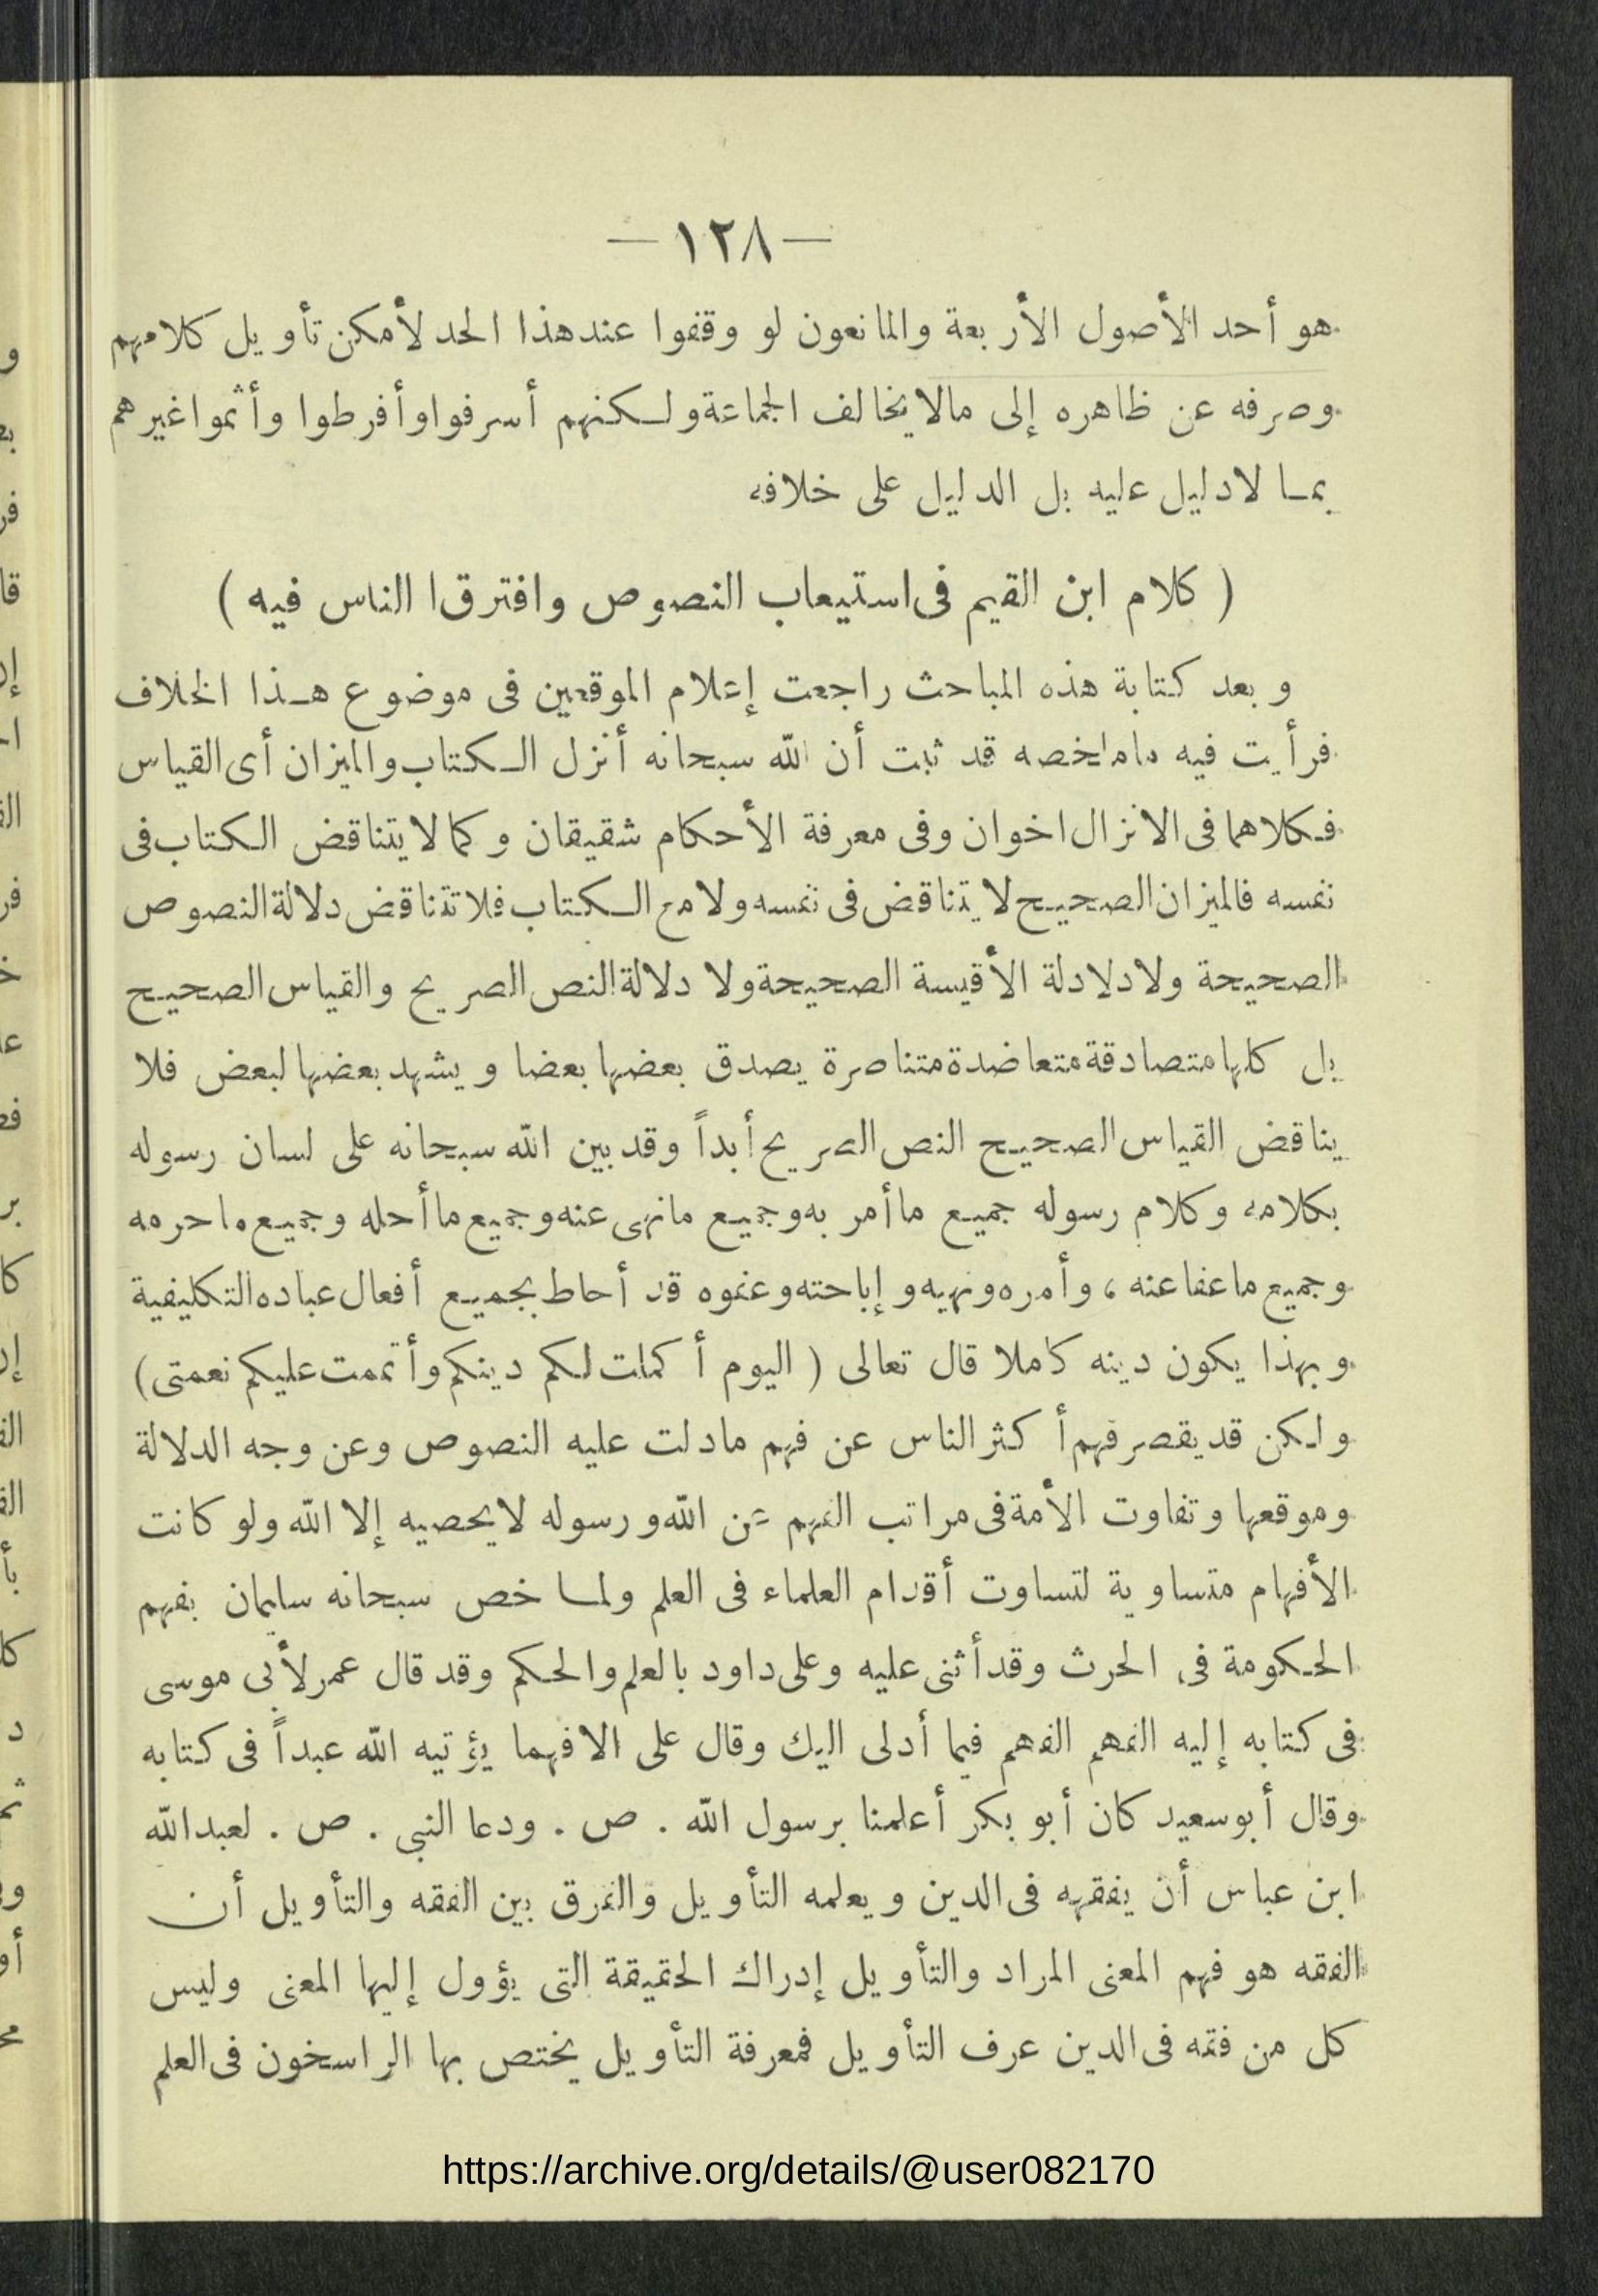 — ١٢٨ —
هو أحد الأصول الأربعة والمانعون لو وقفوا عند هذا الحد لأمكن تأويل كلامهم
وصرفه عن ظاهره إلى مالا يخالف الجماعة ولكنهم أسرفوا وأفرطوا وأثموا غيرهم
بما لا دليل عليه بل الدليل على خلافه
( كلام ابن القيم فى استيعاب النصوص وافترق ا الناس فيه )
وبعد كتابة هذه المباحث راجعت إعلام الموقعين فى موضوع هذا الخلاف
فرأيت فيه ماملخصه قد ثبت أن الله سبحانه أنزل الكتاب والميزان أى القياس
فكلاهما فى الانزال اخوان وفى معرفة الأحكام شقيقان وكما لا يتناقض الكتاب فى
نفسه فالميزان الصحيح لا يتناقض فى نفسه ولا مع الكتاب فلا تتناقض دلالة النصوص
الصحيحة ولا دلالة الأقيسة الصحيحة ولا دلالة النص الصريح والقياس الصحيح
بل كلها متصادقة متعاضدة متناصرة يصدق بعضها بعضا ويشهد بعضها لبعض فلا
يناقض القياس الصحيح النص الصريح أبداً وقد بين الله سبحانه على لسان رسوله
بكلامه وكلام رسوله جميع ما أمر به وجميع ما نهى عنه وجميع ما أحله وجميع ما حرمه
وجميع ما عفا عنه ، وأمره ونهيه وإباحته وعفوه قد أحاط بجميع أفعال عباده التكليفية
وبهذا يكون دينه كاملا قال تعالى ( اليوم أكملت لكم دينكم وأتممت عليكم نعمتى )
ولكن قد يقصر فهم أكثر الناس عن فهم مادلت عليه النصوص وعن وجه الدلالة
وموقعها وتفاوت الأمة فى مراتب الفهم عن الله ورسوله لا يحصيه إلا الله ولو كانت
الأفهام متساوية لتساوت أقدام العلماء فى العلم ولما خص سبحانه سليمان بفهم
الحكومة فى الحرث وقد أثنى عليه وعلى داود بالعلم والحكم وقد قال عمر لأبى موسى
فى كتابه إليه الفهم الفهم فيما أدلى اليك وقال على الا فهما يؤتيه الله عبداً فى كتابه
وقال أبو سعيد كان أبو بكر أعلمنا برسول الله . ص . ودعا النبى . ص . لعبد الله
ابن عباس أن يفقهه فى الدين ويعلمه التأويل والفرق بين الفقه والتأويل أن
الفقه هو فهم المعنى المراد والتأويل إدراك الحقيقة التى يؤول إليها المعنى وليس
كل من فقه فى الدين عرف التأويل فمعرفة التأويل يختص بها الراسخون فى العلم
https://archive.org/details/@user082170